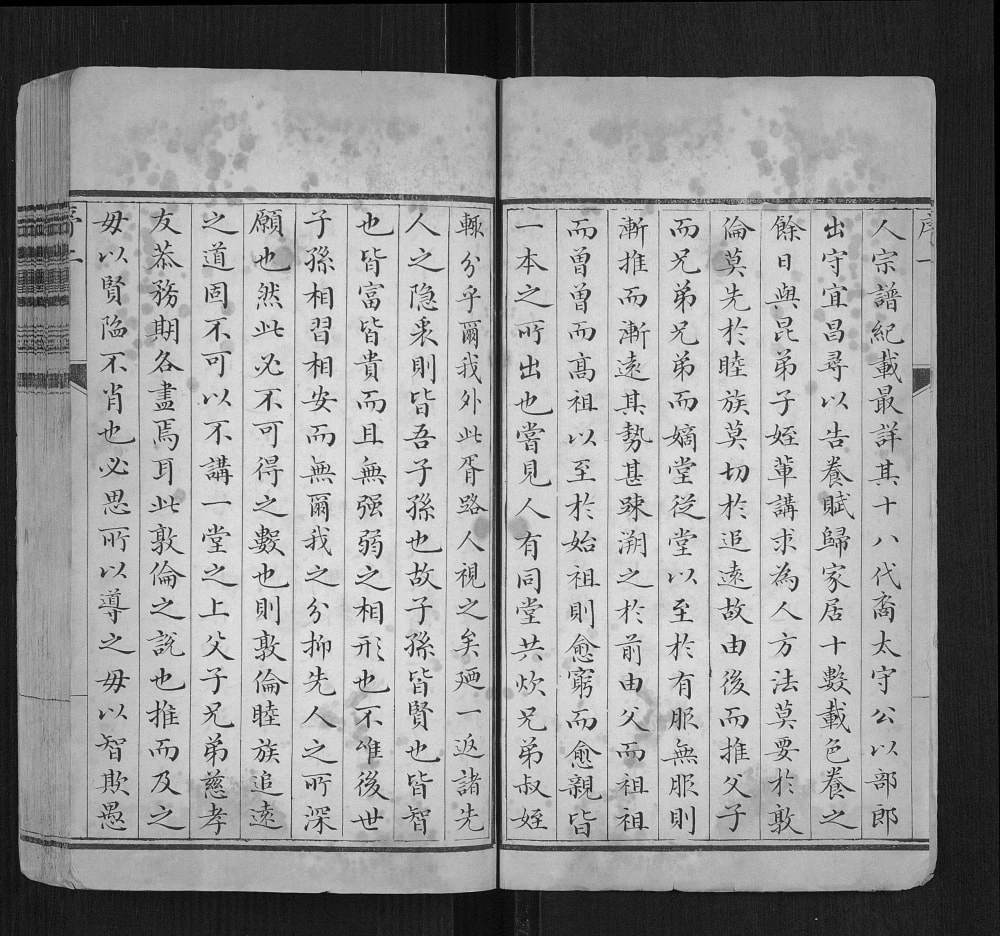 序一
人宗譜紀載最詳其十八代裔太守公以部郎
出守宜昌尋以告養賦歸家居十數載色養之
餘日與昆弟子姪輩講求為人方法莫要於敦
倫莫先於睦族莫切於追遠故由後而推父子
而兄弟兄弟而嫡堂從堂以至於有服無服則
漸推而漸遠其勢甚踈溯之於前由父而祖祖
而曾曾而高祖以至於始祖則愈窮而愈親皆
一本之所出也嘗見人有同堂共炊兄弟叔姪
輙分乎爾我外此胥路人視之矣廼一返諸先
人之隐衷則皆吾子孫也故子孫皆賢也皆智
也皆富皆貴而且無强弱之相形也不唯後世
子孫相習相安而無爾我之分抑先人之所深
願也然此必不可得之數也則敦倫睦族追遠
之道固不可以不講一堂之上父子兄弟慈孝
友恭務期各盡焉耳此敦倫之說也推而及之
毋以賢隘不肖也必思所以導之毋以智欺愚
序二